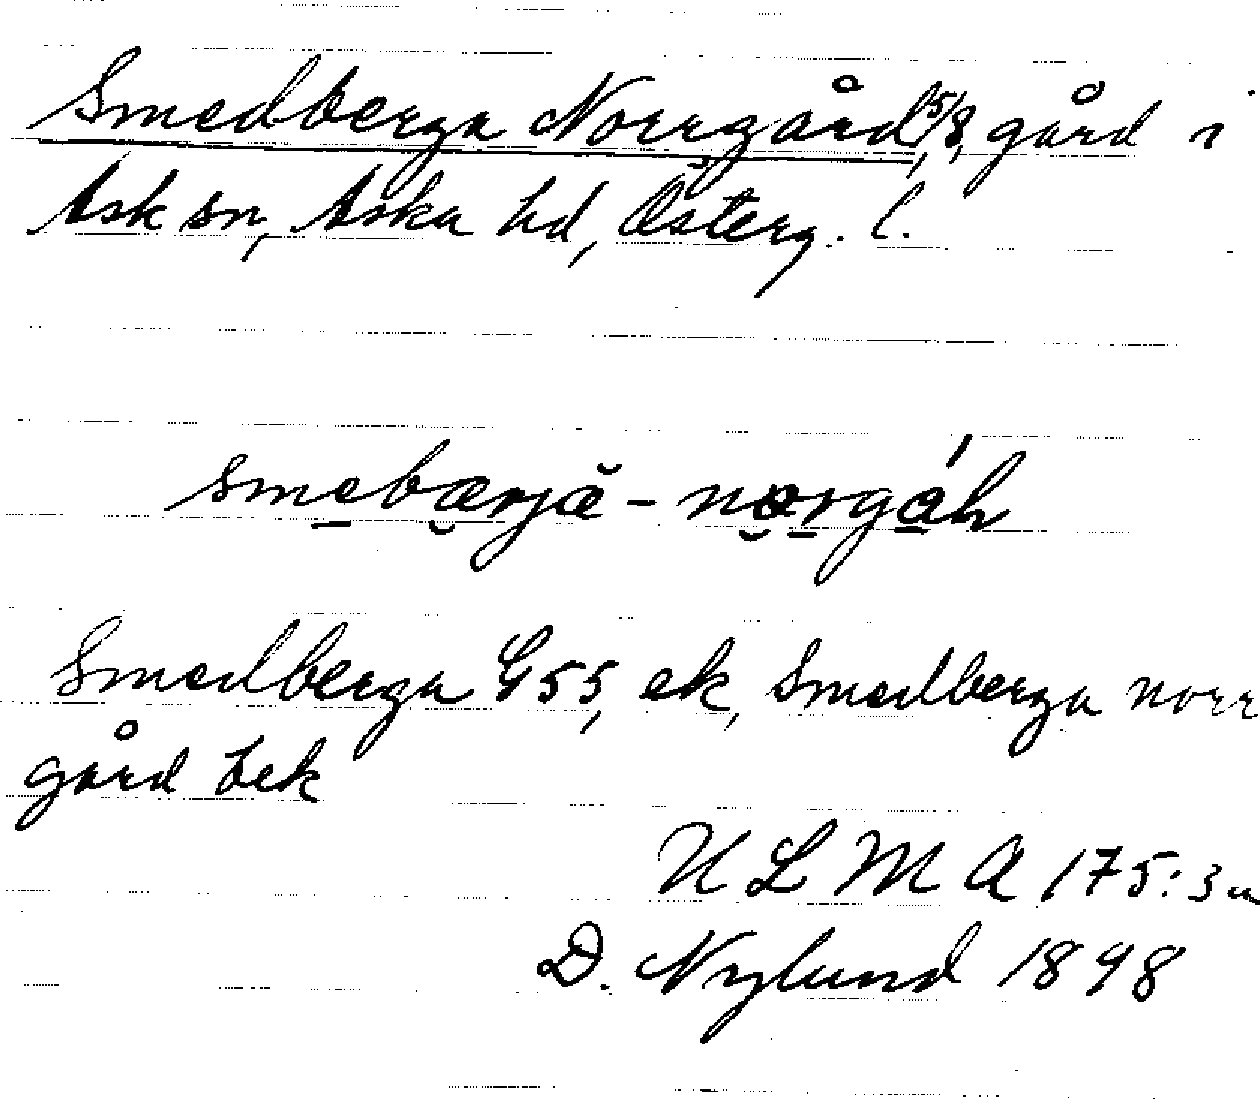 Smedberga Norrgård, 5/8, gård i
Ask sn, Aska hd, Österg. l.
smebærjæ̆ - nærgáh
Smedberga G55, ek, Smedberga norr
gård bek
ULMA 175:3a
D. Nylund 1898